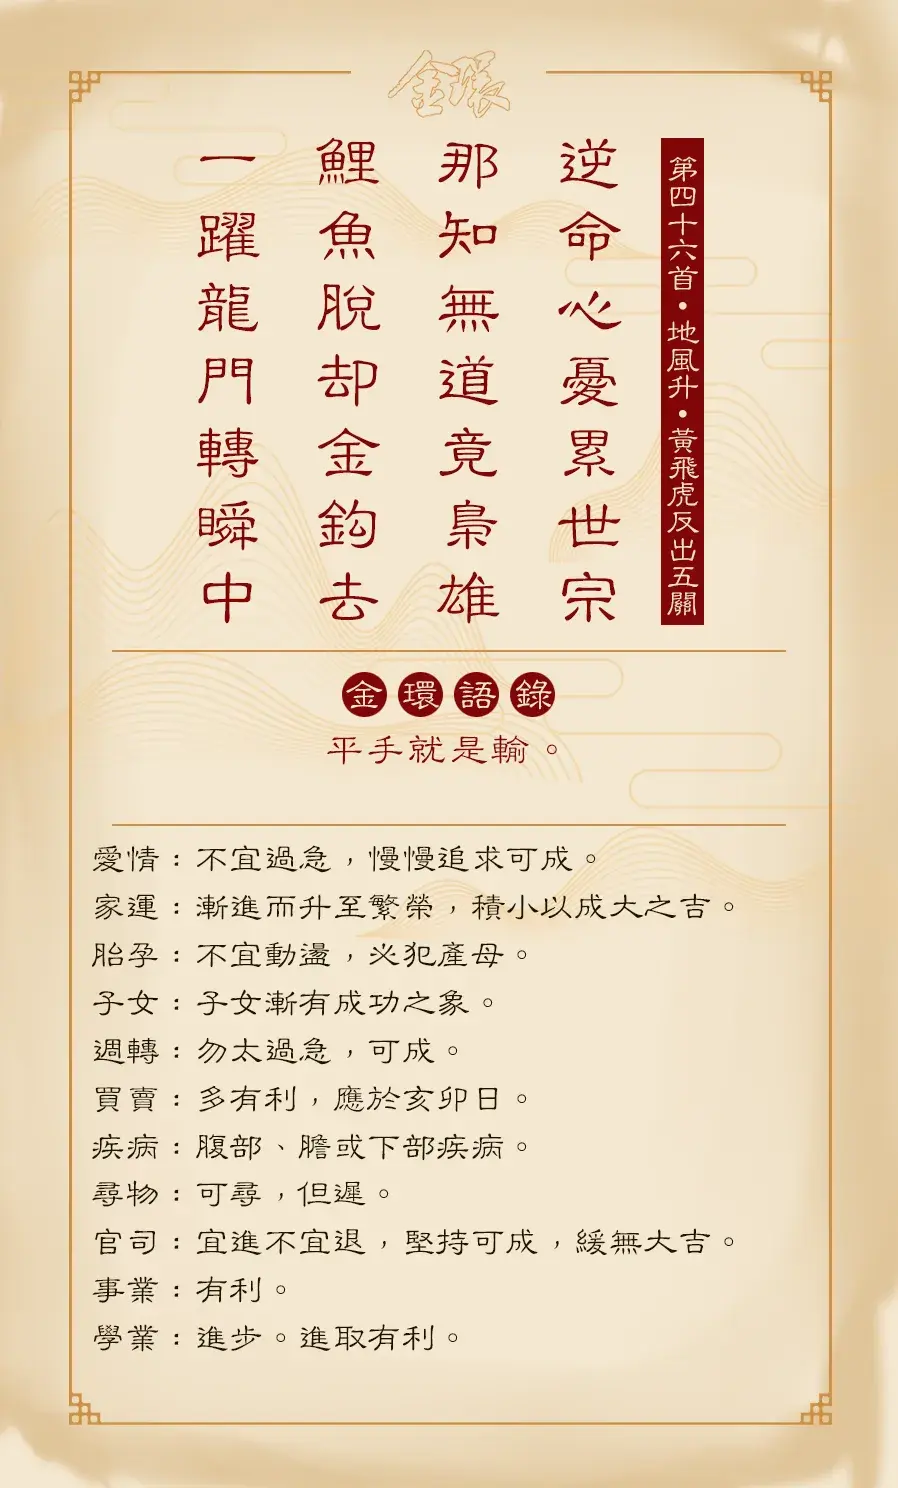 金環
第四十六首•地風升•黃飛虎反出五關
逆命心憂累世宗
那知無道竟梟雄
鯉魚脫却金鈎去
一躍龍門轉瞬中
金環語錄
平手就是輸。
愛情：不宜過急，慢慢追求可成。
家運：漸進而升至繁榮，積小以成大之吉。
胎孕：不宜動盪，必犯產母。
子女：子女漸有成功之象。
週轉：勿太過急，可成。
買賣：多有利，應於亥卯日。
疾病：腹部、膽或下部疾病。
尋物：可尋，但遲。
官司：宜進不宜退，堅持可成，緩無大吉。
事業：有利。
學業：進步。進取有利。